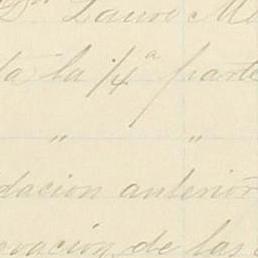 Dn Laur
ta la 1/4a parte
" "
dacion anterior
evación de las